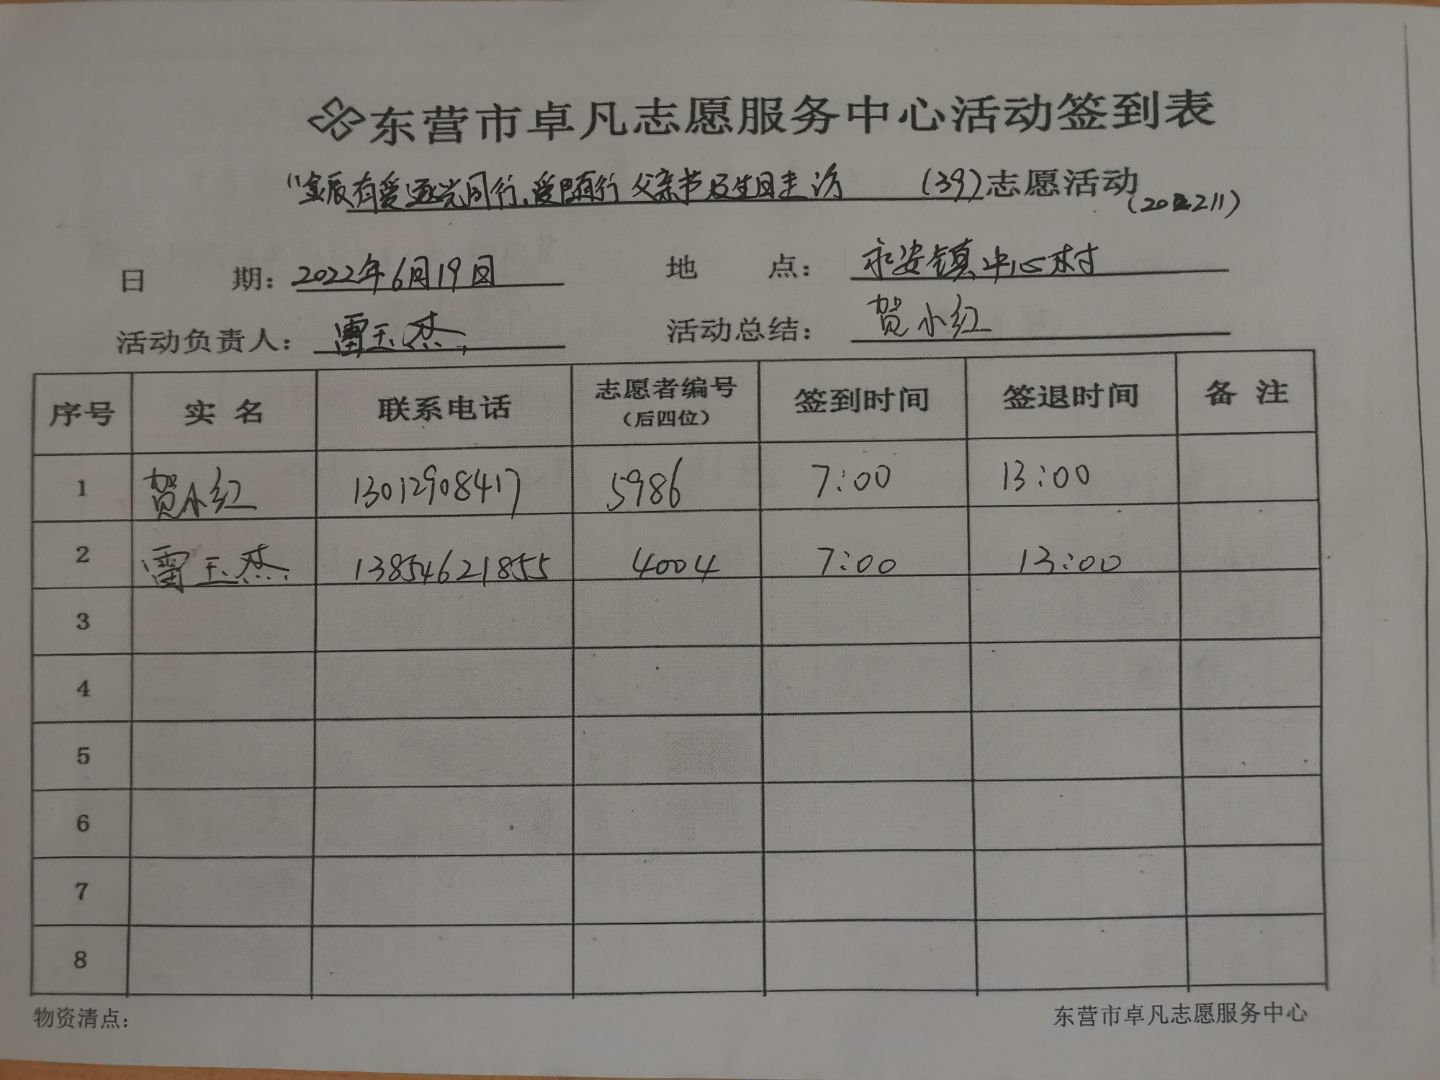 东营市卓凡志愿服务中心活动签到表
有爱 同行、爱 随行 父亲节及生日走访 (39)志愿活动
日 期: 2022年6月19日 地 点: 永安镇中心村
活动负责人: 雷玉杰 活动总结: 贺小红
序号 实 名 联系电话 志愿者编号 (后四位) 签到时间 签退时间 备 注
1 贺小红 13012908417 5986 7:00 13:00
2 雷玉杰 13854621855 4004 7:00 13:00
3
4
5
6
7
8
物资清点: 东营市卓凡志愿服务中心